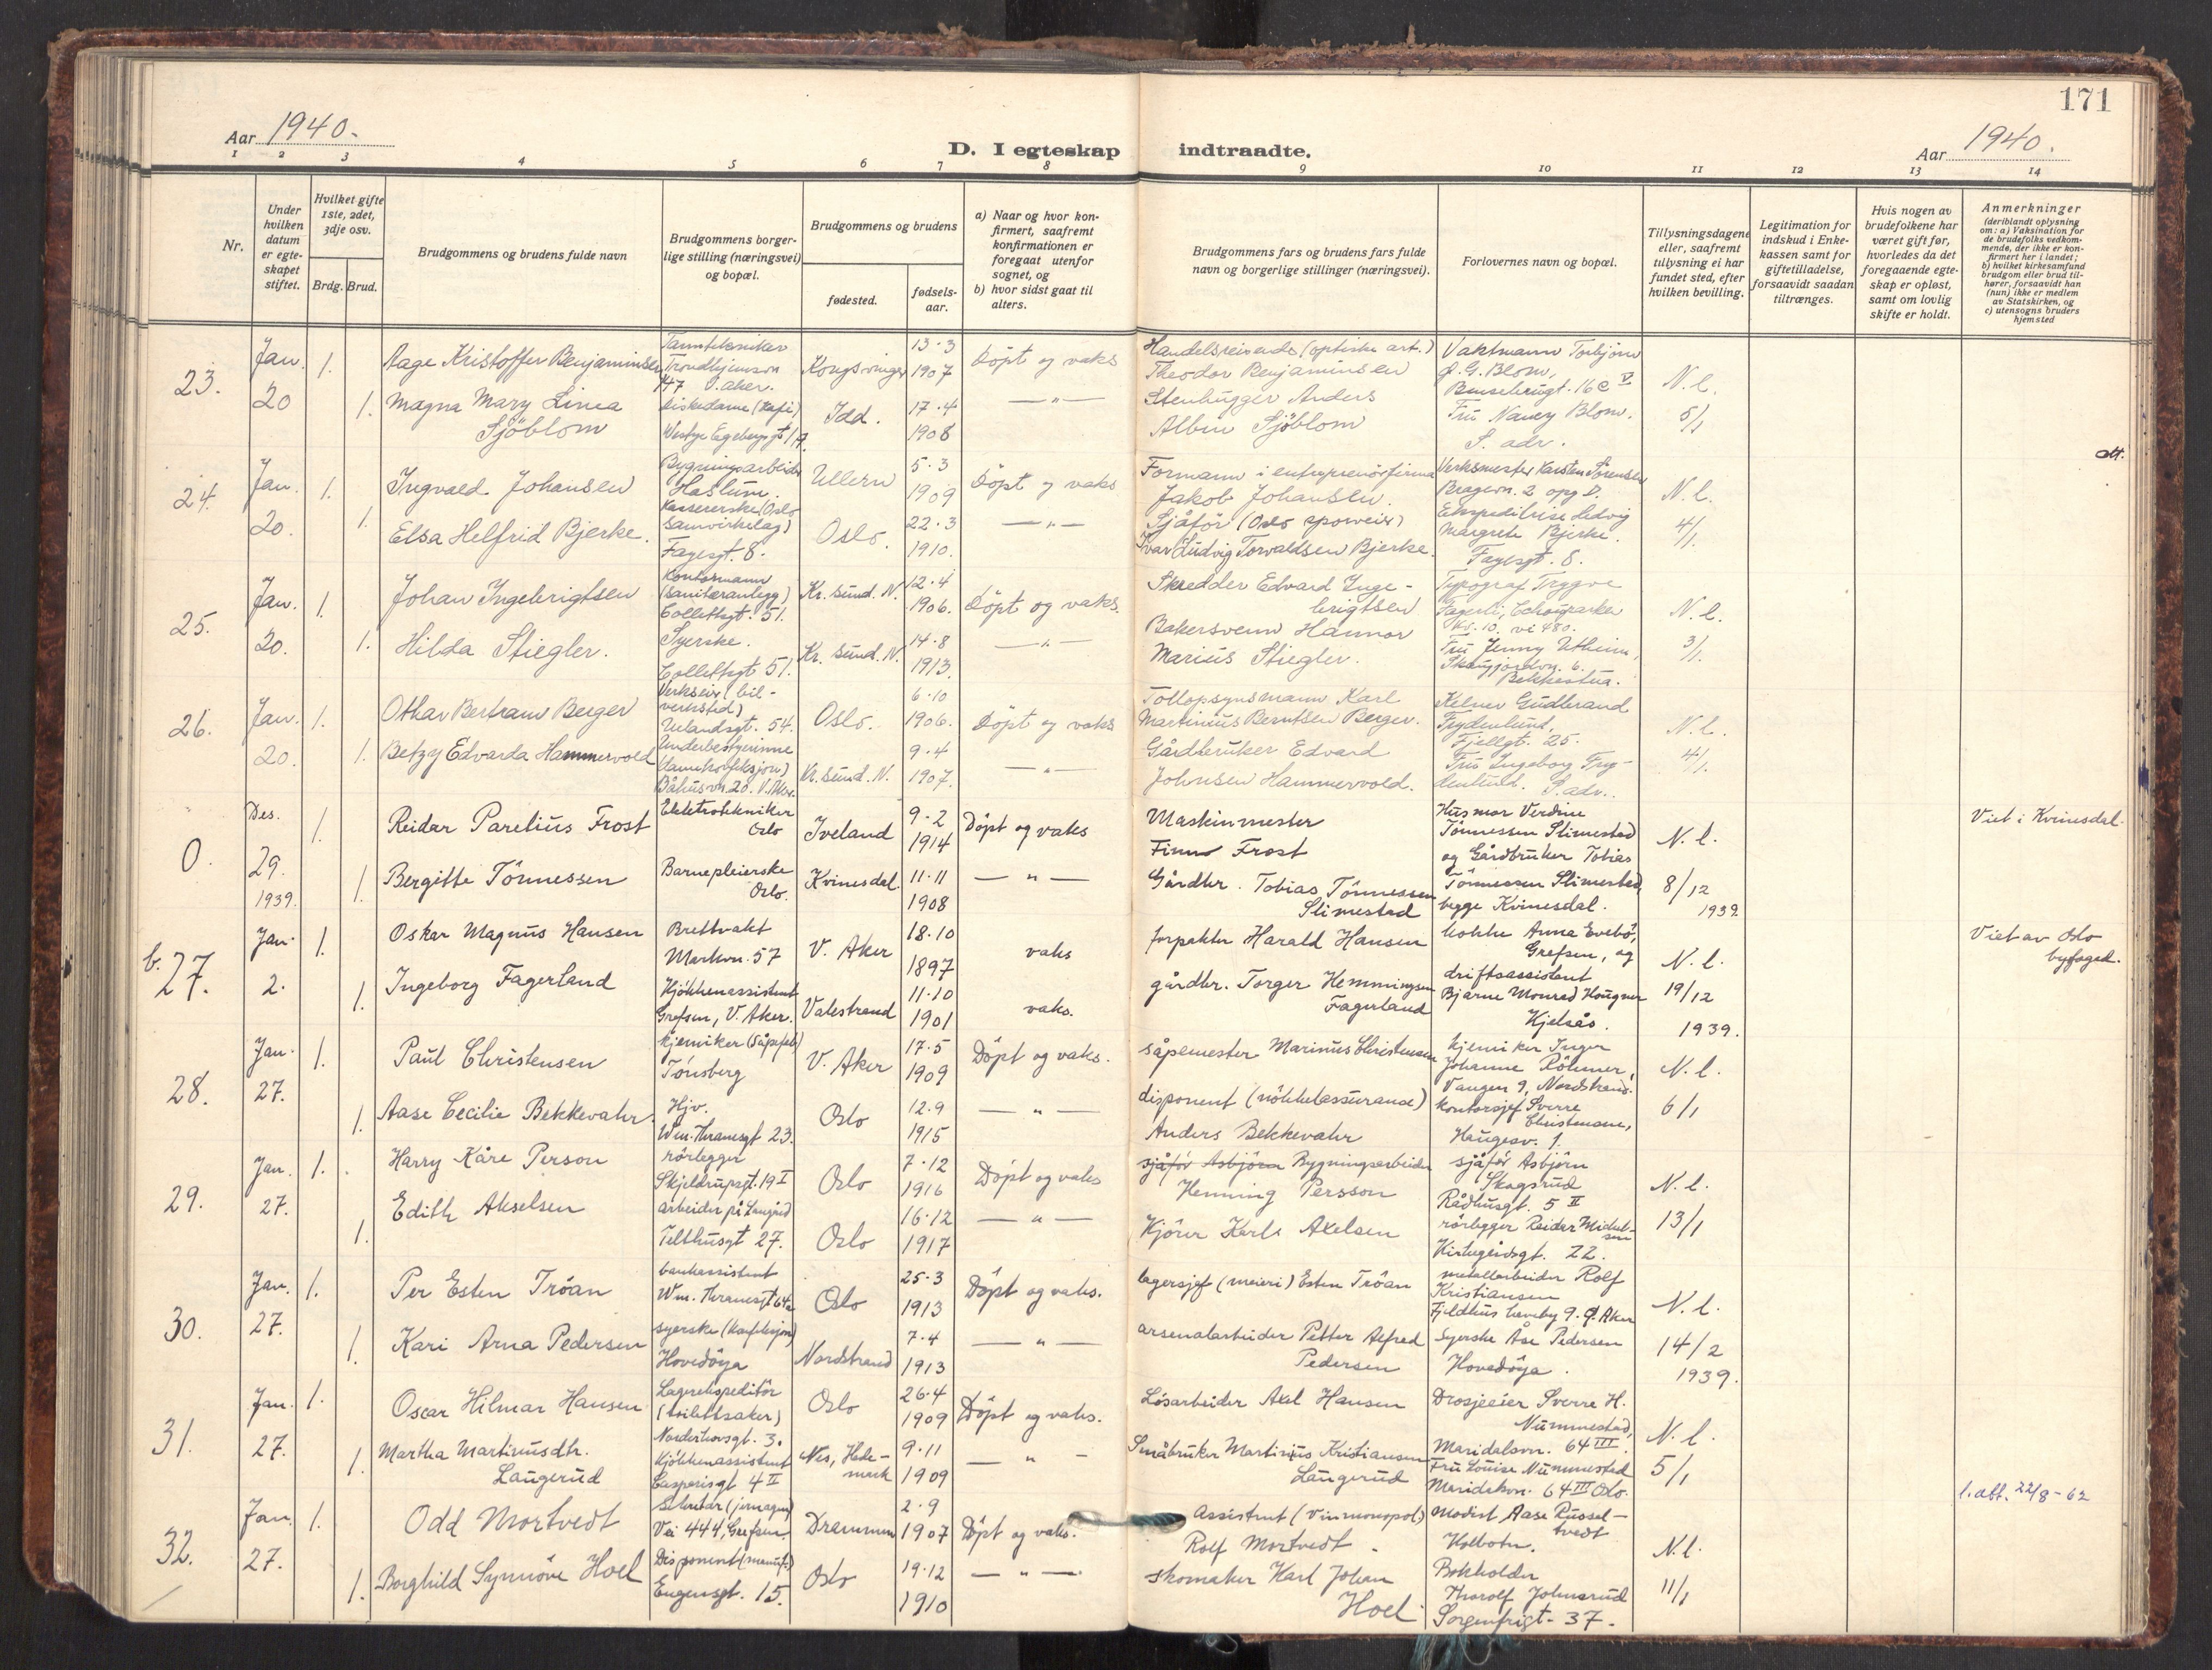 171
Aar 1940.
D. I egteskap indtraadte.
Aar 1940.
1 2 3 4 5 6 7 8 9 10 11 12 13 14
Nr.
Under hvilken datum er egteskapet stiftet.
Hvilket gifte 1ste, 2det, 3dje osv.
Brdg. Brud.
Brudgommens og brudens fulde navn
Brudgommens borgerlige stilling (næringsvei) og bopæl.
Brudgommens og brudens
fødested.
fødselsaar.
a) Naar og hvor konfirmert, saafremt konfirmationen er foregaat utenfor sognet, og
b) hvor sidst gaat til alters.
Brudgommens fars og brudens fars fulde navn og borgerlige stillinger (næringsvei).
Forlovernes navn og bopæl.
Tillysningsdagene eller, saafremt tillysning ei har fundet sted, efter hvilken bevilling.
Legitimation for indskud i Enkekassen samt for giftetilladelse, forsaavidt saadan tiltrænges.
Hvis nogen av brudefolkene har været gift før, hvorledes da det foregaaende egteskap er opløst, samt om lovlig skifte er holdt.
Anmerkninger
(deriblandt oplysning om: a) Vaksination for de brudefolks vedkommende, der ikke er konfirmert her i landet; b) hvilket kirkesamfund brudgom eller brud tilhører, forsaavidt han (hun) ikke er medlem av Statskirken, og c) utensogns bruders hjemsted
23. Jan. 20 1. Aage Kristoffer Benjaminsen Tanntekniker Trondhjemsvn 147 Kongsvinger 13-3 1907 Döpt og vaks Handelsreisende (optiske art.) Theodor Benjaminsen Vaktmann Torbjörn Blom, N.l. 5/1
1. Magna Mary Linea Sjöblom Idd. 17-4 1908 — " — Stenhugger Anders Albin Sjöblom Fru Nancy Blom. S. adr.
att.
24. Jan. 20. 1. Ingvald Johansen Bygningsarbeider Haslum. Ullern 5-3 1909 Döpt og vaks Formann i entreprenörfirma Jakob Johansen. Verksmester Karsten Sörensen 2 opg D. N.l. 4/1.
1. Elsa Helfrid Bjerke. Kassererske (Oslo Samvirkelag) Fagesgt. 8. Oslo. 22-3 1910. — " — Sjåför (Oslo sporveier) Ivar Ludvig Torvaldsen Bjerke. Ekspeditrise Hedvig Margrete Bjerke. Fagesgt. 8.
25. Jan. 20. 1. Johan Ingebrigtsen Kontormann (Sanitæranlegg) Collettsgt. 51. Kr. sund. N. 12-4 1906. Döpt og vaks. Skredder Edvard Ingebrigtsen Typograf Trygve Fagerli, N.l. 3/1.
1. Hilda Stiegler. Syerske. Collettsgt. 51. Kr. sund. N. 14-8 1913. — " — Bakersvenn Marius Stiegler. Fru Jenny Utheim, Bekkestua.
26. Jan. 20. 1. Othar Bertram Berger Verkseier (bilverksted) Uelandsgt. 54. Oslo. 6-10 1906. Döpt og vaks Tollopsynsmann Karl Martinius Berntsen Berger. Kelner Gudbrand Frydenlund, Fjellgt. 25. N.l. 4/1.
1. Betzy Edvarda Hammervold Underbestyrerinne Båhusvn. 20. V. Aker. Kr. sund. N. 9-4 1907. — " — Gårdbruker Edvard Johnsen Hammervold. Fru Ingeborg Frydenlund. S. adr.
0. Des. 29. 1939. 1. Reidar Parelius Frost Elektrotekniker Oslo Iveland 9-2 1914 Döpt og vaks Maskinmester Finn Frost Husmor Verdine Tönnessen Slimestad og Gårdbruker Tobias Tönnessen Slimestad begge Kvinesdal. N.l. 8/12 1939. Viet i Kvinesdal.
1. Bergitte Tönnessen Barnepleierske Oslo. Kvinesdal 11-11 1908 — " — Gårdbr. Tobias Tönnessen Slimestad
b. 27. Jan. 2. 1. Oskar Magnus Hansen Brettvakt Markvn. 57 V. Aker 18-10 1897 vaks forpakter Harald Hansen kokke Anna Evebö, Grefsen, og N.l. 19/12 1939. Viet av Oslo byfoged.
1. Ingeborg Fagerland Kjökkenassistent Grefsen, V. Aker. Valestrand 11-10 1901 vaks. gårdbr. Torger Hemmingsen Fagerland driftsassistent Bjarne Monrad Haugner Kjelsås.
28. Jan. 27. 1. Paul Christensen Kjemiker (Såpefabr) Tönsberg V. Aker 17-5 1909 Döpt og vaks. såpemester Marinus Christensen kjemiker Inger Johanne Röhmer, Vangen 9, Nordstrand. N.l. 6/1
1. Aase Cecilie Bekkevahr. Hjv. Wm. Thranesgt 23. Oslo 12-9 1915 — " — disponent (nökkelassuranse) Anders Bekkevahr kontorsjef Sverre Christensen, Haugesv. 1.
29. Jan. 27. 1. Harry Kåre Person rörlegger Skjeldrupsgt. 19 I Oslo 7-12 1916 Döpt og vaks sjåför Asbjörn Bygningsarbeider Henning Persson sjåför Asbjörn Skogsrud Rådhusgt. 5 II N.l. 13/1
1. Edith Akselsen arbeider på Telthusgt 27. Oslo 16-12 1917 — " — Kjörer Karl Axelsen rörlegger Reidar Michelsen Kirkegårdsgt. 22.
30. Jan. 27. 1. Per Esten Tröan bankassistent Wm. Thranesgt 64a Oslo 25-3 1913 Döpt og vaks. lagersjef (meieri) Esten Tröan metallarbeider Rolf Kristiansen Fjeldhus haveby 9. Ö. Aker N.l. 14/2 1939.
1. Kari Arna Pedersen syerske (konfeksjon) Hovedöya Nordstrand 7-4 1913 — " — arsenalarbeider Petter Alfred Pedersen Syerske Åse Pedersen Hovedöya.
31. Jan. 27. 1. Oscar Hilmar Hansen Lagerekspeditör (toilettsaker) Norderhovsgt. 3. Oslo 26-4 1909 Döpt og vaks. Lösarbeider Axel Hansen Drosjeeier Sverre H. Nummestad, Maridalsvn. 64 III. N.l. 5/1
1. Martha Martinusdtr. Laugerud Kjökkenassistent Casparisgt 4 II Nes, Hedemark 9-11 1909 — " — Småbruker Martinius Kristiansen Laugerud Fru Louise Nummestad Maridalsvn. 64 III Oslo.
l. att. 22/8-62
32. Jan. 27. 1. Odd Mortvedt Sekretær Vei 444, Grefsen Drammen 2-9 1907 Döpt og vaks. Assistent (Vinmonopol) Rolf Mortvedt. Modist Aase Russeltvedt Kolbotn. N.l. 11/1
1. Borghild Synnöve Hoel Disponent Eugensgt. 15. Oslo 19-12 1910 — " — skomaker Karl Johan Hoel Bokholder Thorolf Johnsrud Sorgenfrigt. 37.